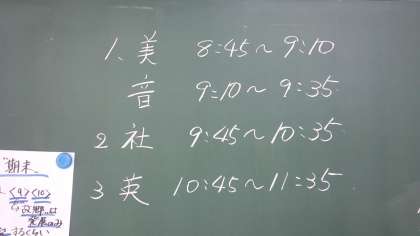 1. 美 8:45～9:10
音 9:10～9:35
2 社 9:45～10:35
3 英 10:45～11:35
期末